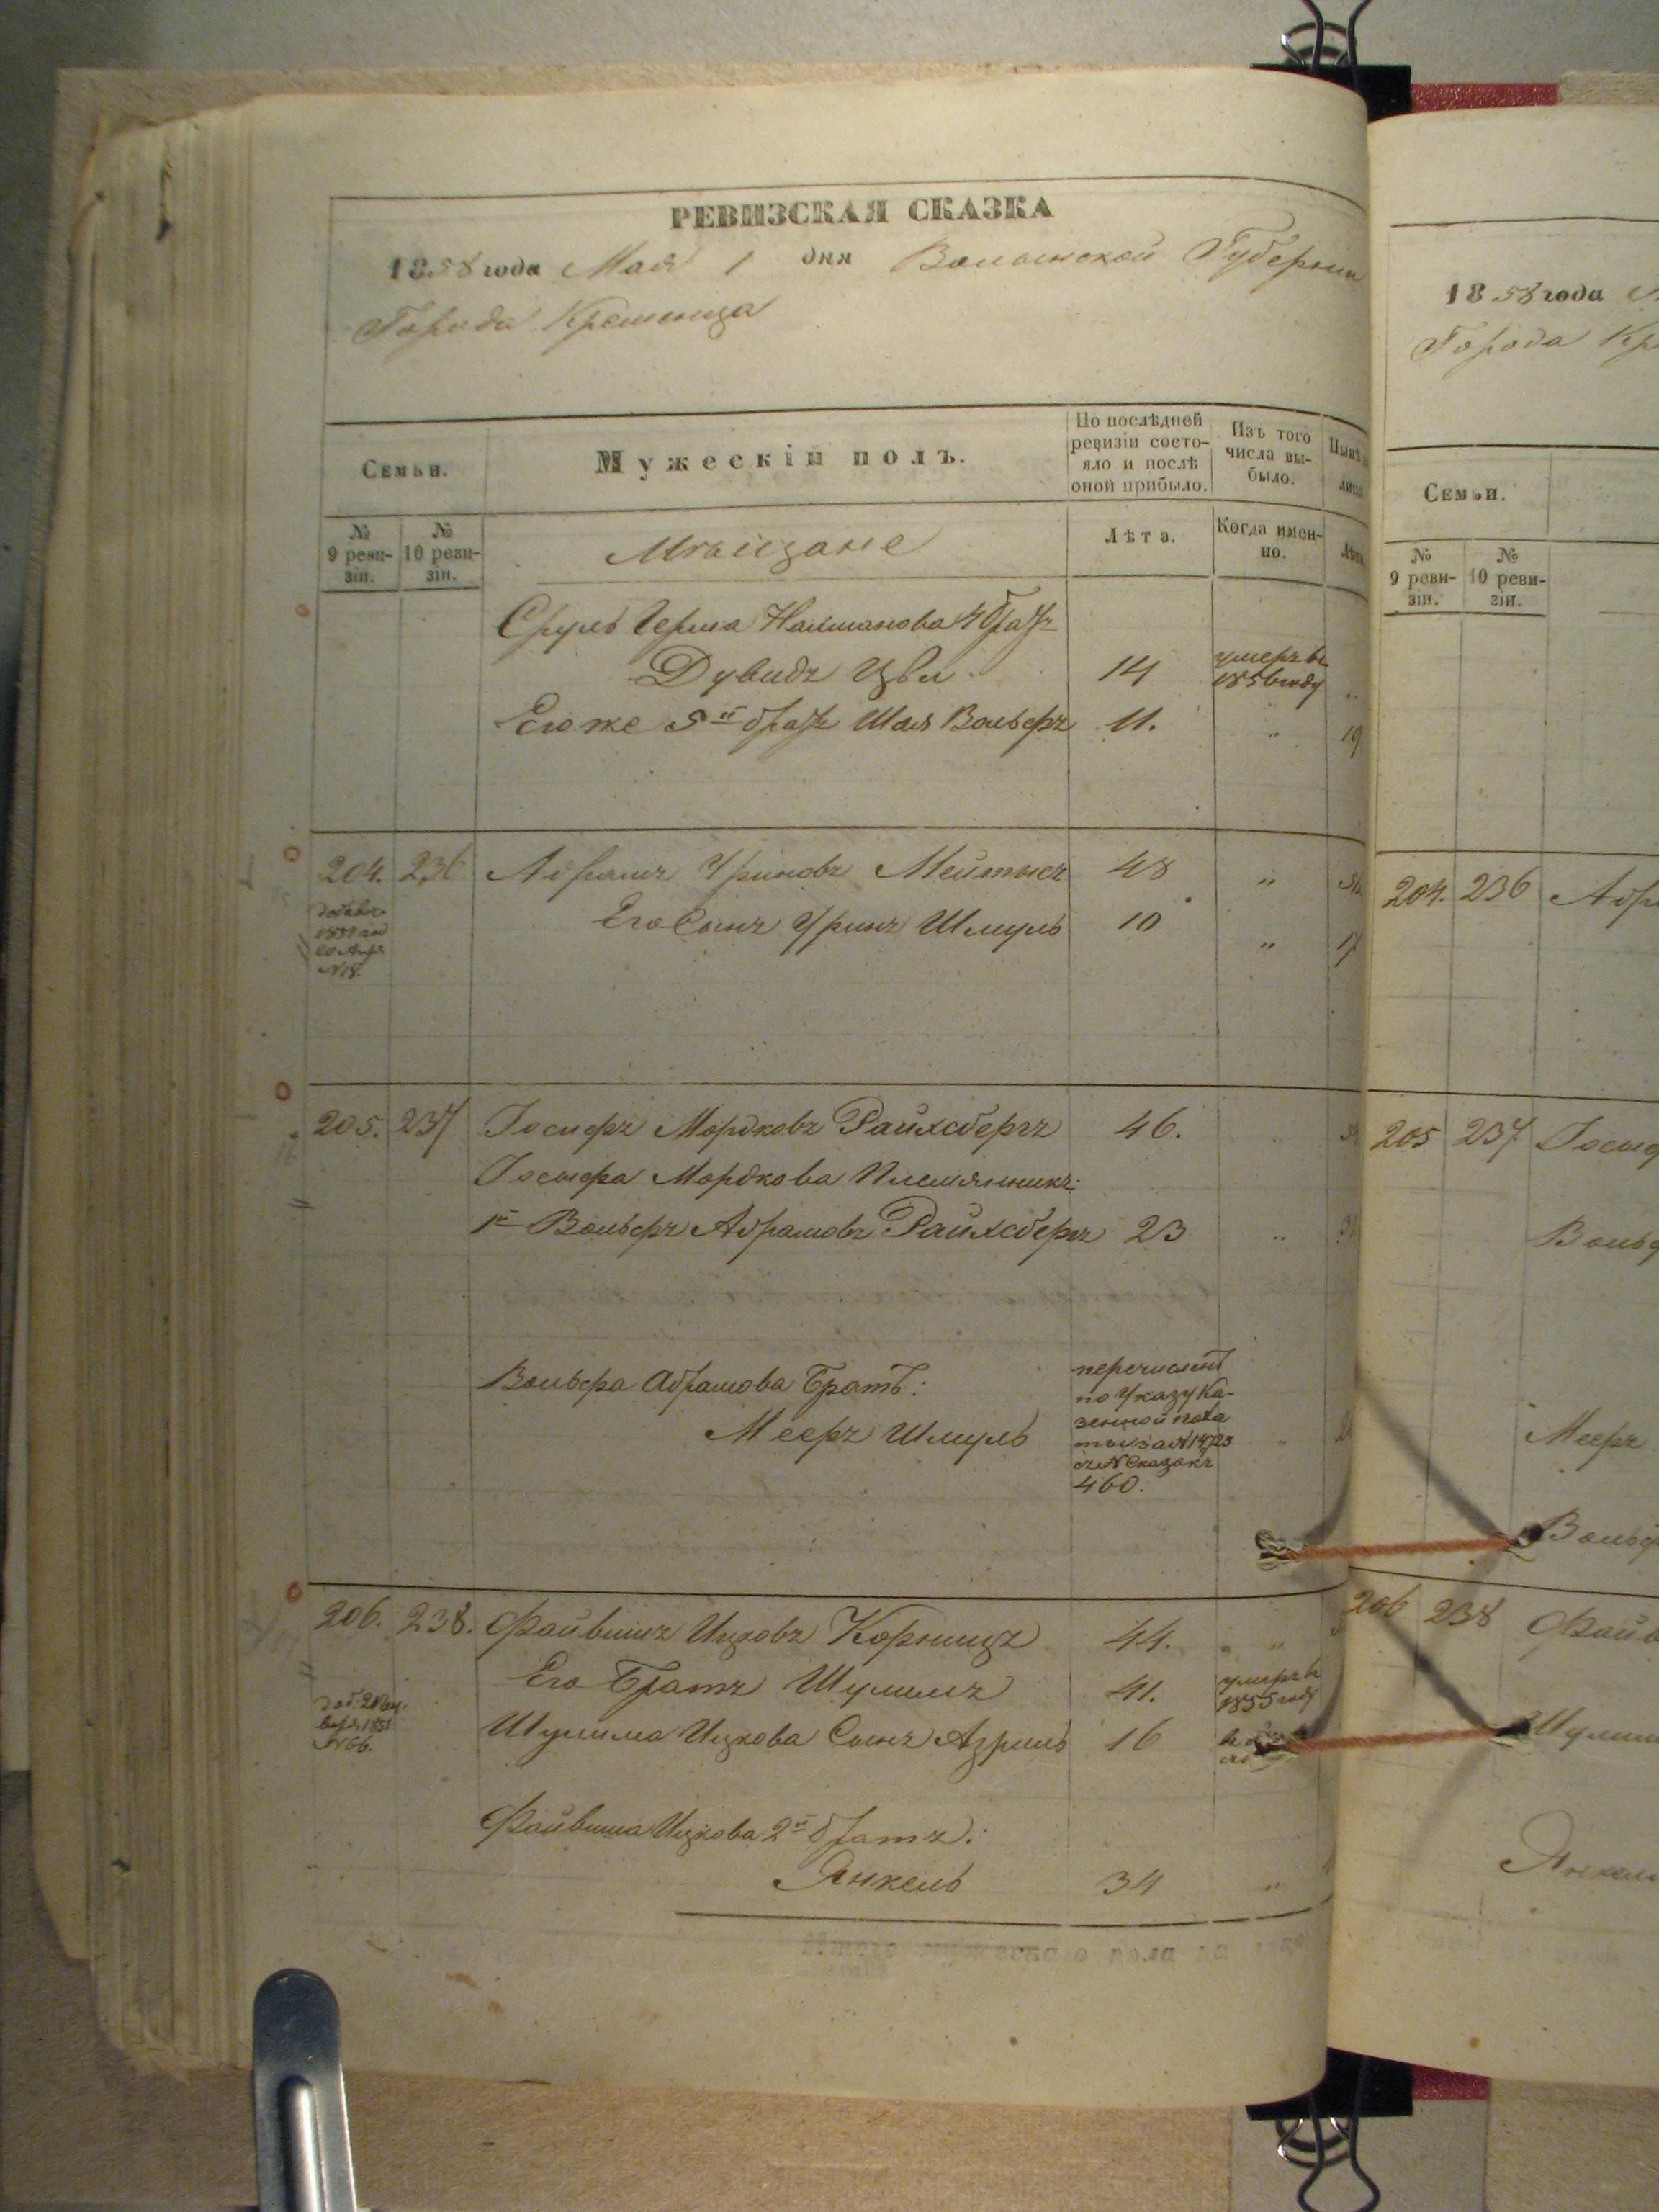 РЕВИЗСКАЯ СКАЗКА
1858 года Мая 1 дня Волынской Губернии
Города Кременца
Семьи.
Мужескій полъ.
По послѣдней ревизіи состояло и послѣ оной прибыло.
Изъ того числа выбыло.
№ 9 ревизіи.
№ 10 ревизіи.
Мѣщане
Лѣта.
Когда именно.
Лѣта
Сруль Герша Нахманова 4 братъ
Дувидъ Цви 14 умеръ въ 1856 году
Его же 5й братъ Шая Вольфъ 11. " 19
204. 236 Абрамъ Уриновъ Меймысъ 48 "
Его Сынъ Уринъ Шмуль 10 " 17
205. 237 Іосифъ Мордковъ Райхсбергъ 46.
Іосифа Мордкова Племянникъ:
1й Вольфъ Абрамовъ Райхсбергъ 23 "
Вольфа Абрамова Братъ:
Мееръ Шмуль
перечисленъ
по Указу Ка-
зенной пала
ты за № 14723
съ № Сказокъ
460.
206. 238. Файвишъ Ицковъ Корницъ 44. "
Его Братъ Шулимъ 41. умеръ въ 1855 году
Шулима Ицкова Сынъ Азриль 16
Файвиша Ицкова 2й братъ:
Янкель 34 "
1858 года
Города Кр
Семьи.
№ 9 ревизіи.
№ 10 ревизіи.
204. 236 Абр
205 237 Іосиф
Вольф
Мееръ
Вольф
206 238 Файв
Шулим
Янкел